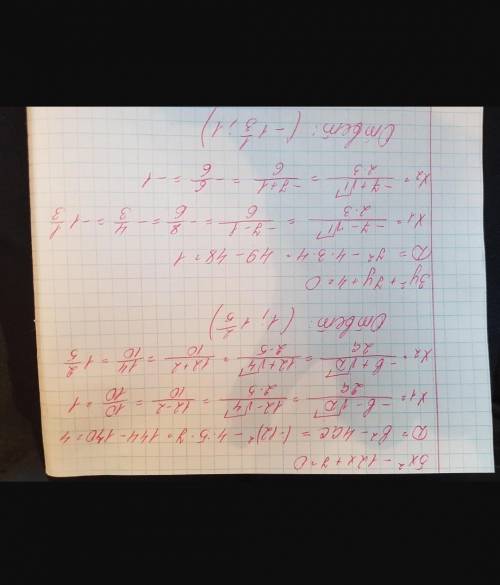 5x² - 12x + 7 = 0
D = b² - 4ac = (-12)² - 4·5·7 = 144 - 140 = 4
x₁ = (-b - √D)/2a = (12 - √4)/2·5 = (12 - 2)/10 = 10/10 = 1
x₂ = (-b + √D)/2a = (12 + √4)/2·5 = (12 + 2)/10 = 14/10 = 1 2/5
Ответ: (1; 1 2/5)
3y² + 7y + 4 = 0
D = 7² - 4·3·4 = 49 - 48 = 1
x₁ = (-7 - √1)/2·3 = (-7 - 1)/6 = -8/6 = -4/3 = -1 1/3
x₂ = (-7 + √1)/2·3 = (-7 + 1)/6 = -6/6 = -1
Ответ: (-1 1/3; 1)